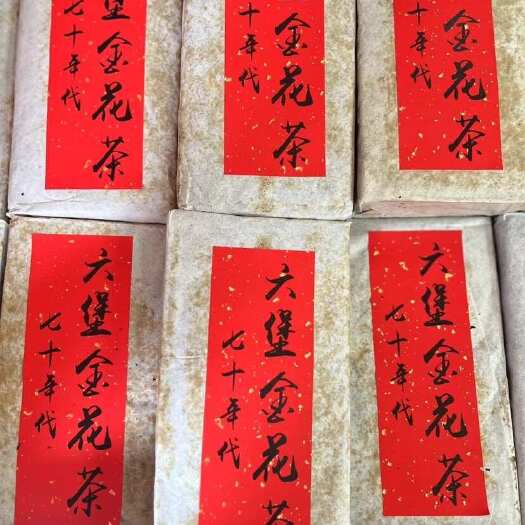 堡金花茶
七十年代
金花茶
七十年代
金花茶
十年代
六堡金花茶
七十年代
六堡金花茶
七十年代
六堡金花茶
七十年代